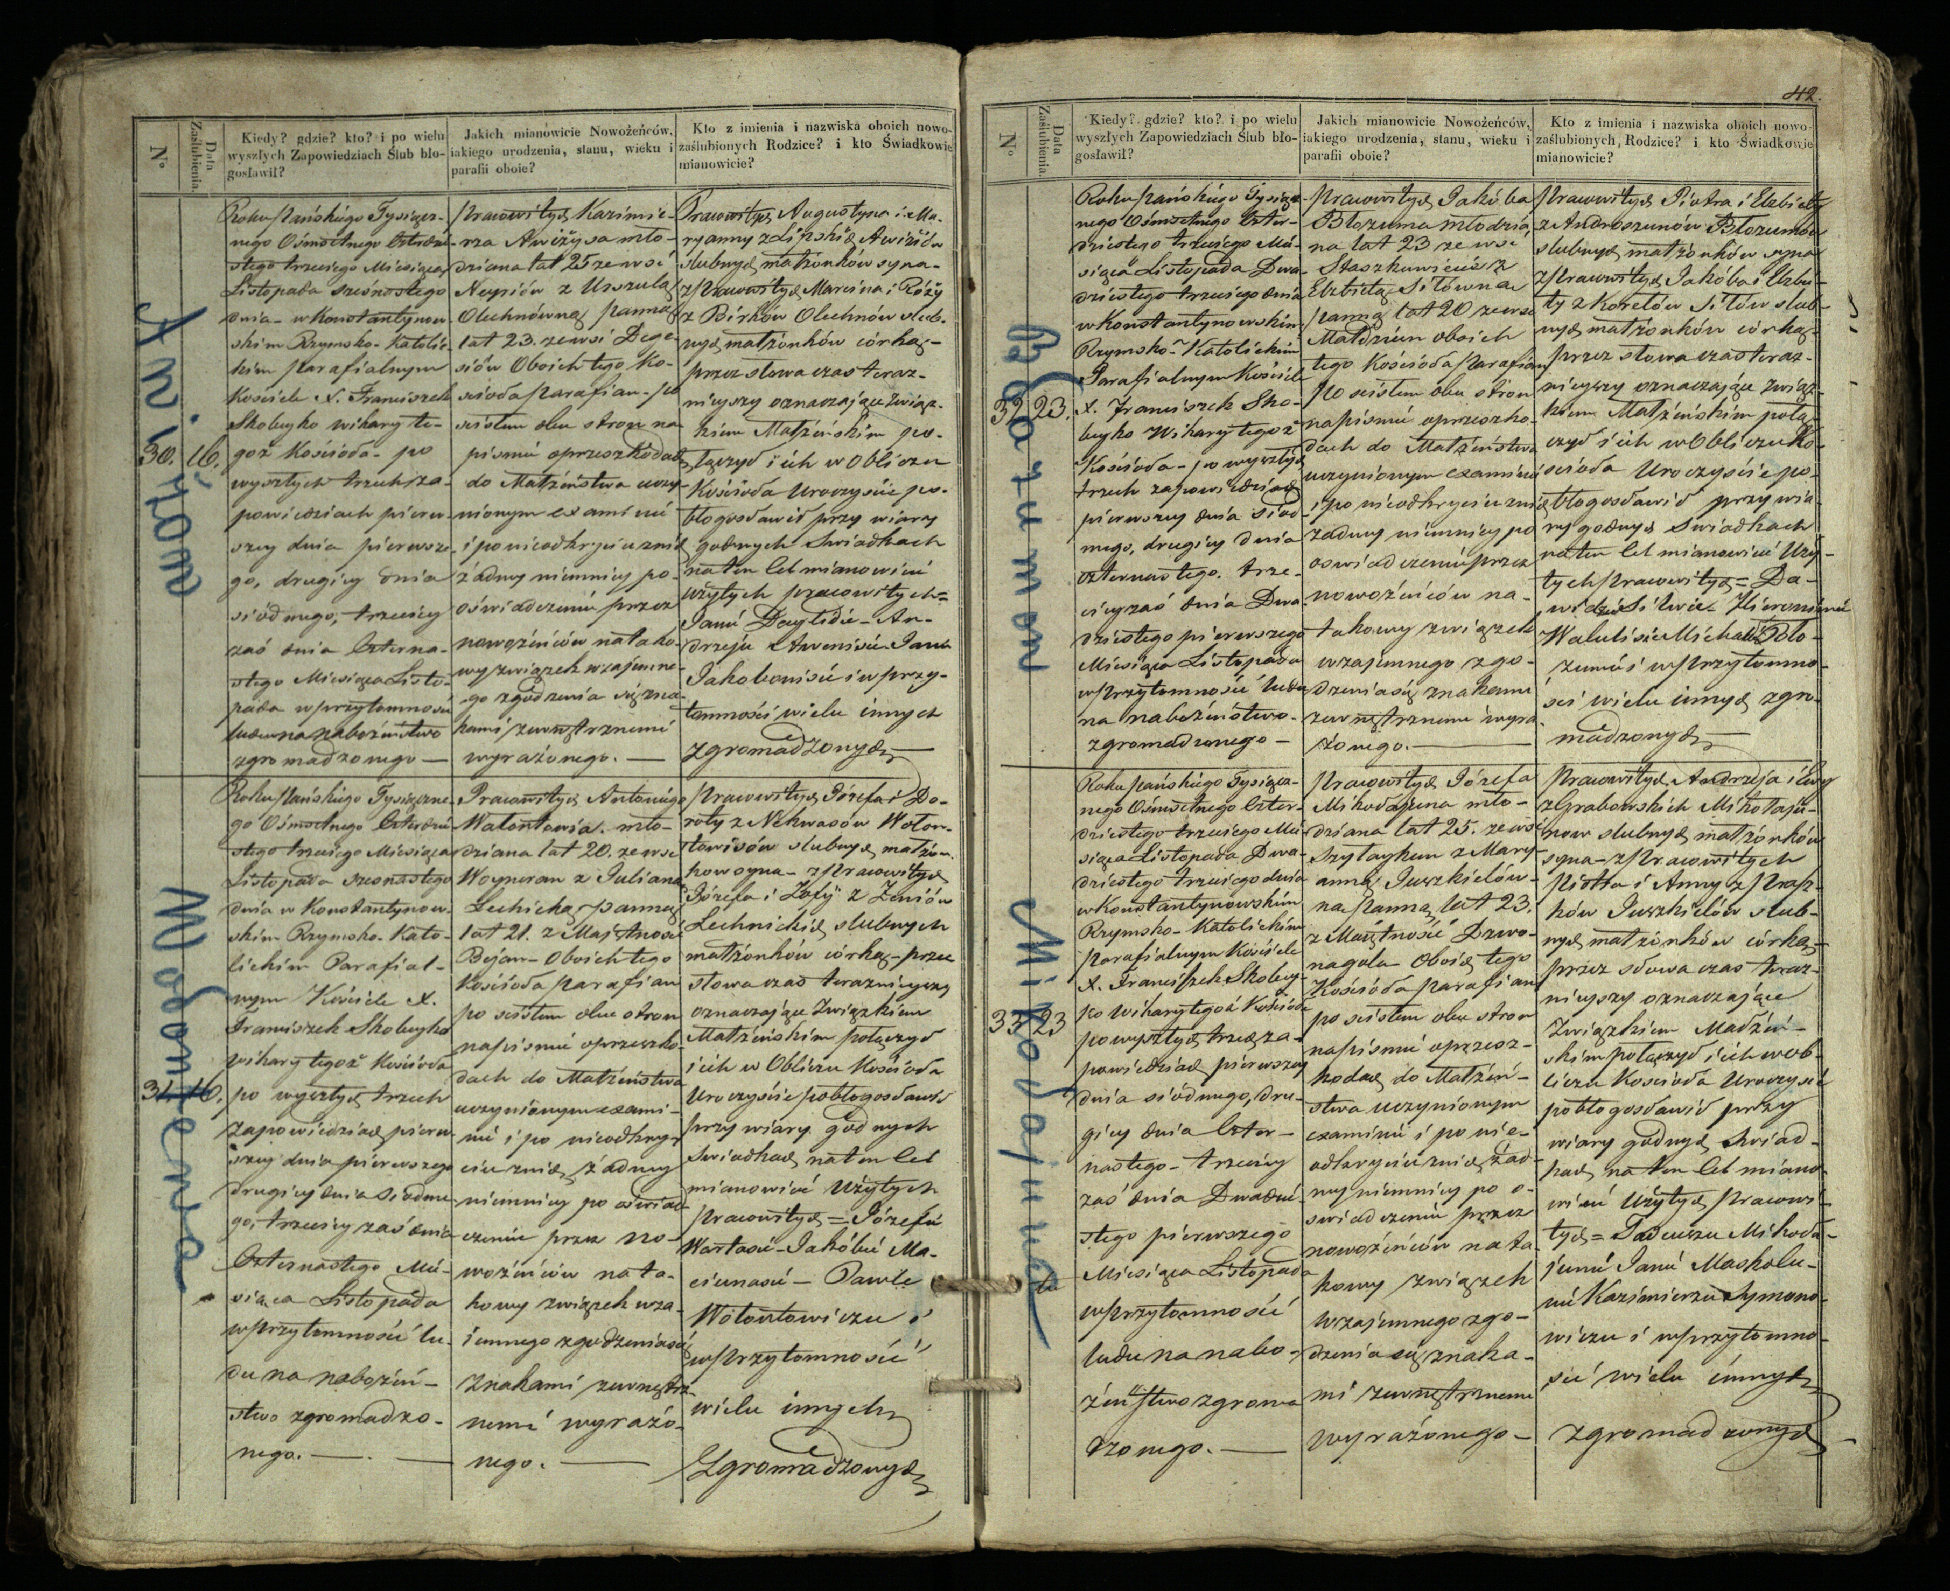 N°
Data Zaślubienia.
Kiedy? gdzie? kto? i po wielu
wyszłych Zapowiedziach Ślub bło-
gosławił?
Jakich mianowicie Nowożeńców,
iakiego urodzenia, stanu, wieku i
parafii oboie?
Kto z imienia i nazwiska oboich nowo-
zaślubionych Rodzice? i kto Świadkowie
mianowicie?
30.
16.
Roku Pańskiego Tysiącz-
nego Ośmsetnego Czterdzie-
stego trzeciego Miesiąca
Listopada szesnastego
dnia - w Konstantynow-
skim Rzymsko-Katolic-
kim Parafialnym
Kościele X. Franciszek
Skobeyko wikary te-
goż Kościoła - po
wyszłych trzech za-
powiedziach pierw-
szey dnia pierwsze-
go, drugiey dnia
siódmego, trzeciey
zaś dnia Czterna-
stego Miesiąca Listo-
pada w przytomności
ludu na nabożeństwo
zgromadzonego —
Pracowitych Kazimie-
rza Awiżysa mło-
dziana lat 25 ze wsi
z Urszulą
Olechnówną panną
lat 23. ze wsi Dege-
siów Oboich tego Ko-
ścioła Parafian - po
ścisłem obu stron na
piśmie o przeszkodach
do Małżeństwa uczy-
nionym examinie
i po nieodkryciu onich
żadney niemniey po
oświadczeniu przez
nowożeńców na tako-
wy związek wzajemne-
go zgodzenia się zna-
kami zewnętrznemi
wyrażonego. —
Pracowitych Augustyna i Ma-
ryanny z Lipskich Awiżiów
ślubnych małżonków syna-
z Pracowitych Marcina i Róży
z Birków Olechnów ślub-
nych małżonków córką -
przez słowa czas teraz-
nieyszy oznaczające Związ-
kiem Małżeńskim po-
łączył i ich w Obliczu
Kościoła Uroczyście po-
błogosławił przy wiary
godnych Świadkach
na ten cel mianowicie
użytych pracowitych =
Janie Daylidie - An-
drzeju
Jakobowisie i w przy-
tomności wielu innych
zgromadzonych —
31.
16.
Roku Pańskiego Tysiączne-
go Ośmsetnego Czterdzie-
stego trzeciego Miesiąca
Listopada szesnastego
dnia w Konstantynow-
skim Rzymsko-Kato-
lickim Parafial-
nym Kościele X.
Franciszek Skobeyko
wikary tegoż Kościoła
po wyszłych trzech
zapowiedziach pierw-
szey dnia pierwszego
drugiey dnia siódme-
go, trzeciey zaś dnia
Czternastego Mie-
siąca Listopada
w przytomności lu-
du na nabożeń-
stwo zgromadzo-
nego. —
Pracowitych Antoniego
mło-
dziana lat 20. ze wsi
Woyneran z Julianą
Lechicką panną
lat 21. z Majętności
Bojar - Oboich tego
Kościoła Parafian
po ścisłem obu stron
na piśmie o przeszko-
dach do Małżeństwa
uczynionym exami-
nie i po nieodkry-
ciu onich żadney
niemniey po oświad-
czeniu przez no-
wożeńców na ta-
kowy związek wza-
iemnego zgodzenia się
znakami zewnętrz-
nemi wyrażo-
nego. —
Pracowitych Józefa i Do-
roty z
ślubnych małżon-
ków syna - z Pracowitych
Józefa i Zofij z Zeniów
Lechnickich ślubnych
małżonków córką - przez
słowa czas teraznieyszy
oznaczające Związkiem
Małżeńskim połączył
i ich w Obliczu Kościoła
Uroczyście pobłogosławił
przy wiary godnych
Świadkach na ten cel
mianowicie Użytych
Pracowitych = Józefie
Jakóbie Ma-
ciunasie - Pawle
Wołontowiczu i
w przytomności
wielu innych
Zgromadzonych
42.
N°
Data Zaślubienia.
Kiedy? gdzie? kto? i po wielu
wyszłych Zapowiedziach Ślub bło-
gosławił?
Jakich mianowicie Nowożeńców,
iakiego urodzenia, stanu, wieku i
parafii oboie?
Kto z imienia i nazwiska oboich nowo-
zaślubionych Rodzice? i kto Świadkowie
mianowicie?
32
23.
Błazumow
Roku Pańskiego Tysiącz-
nego Ośmsetnego Czter-
dziestego trzeciego Mie-
siąca Listopada Dwa-
dziestego trzeciego dnia
w Konstantynowskim
Rzymsko-Katolickim
Parafialnym Kościele
X. Franciszek Sko-
beyko Wikary tegoż
Kościoła - po wyszłych
trzech zapowiedziach
pierwszey dnia siód-
mego, drugiey dnia
czternastego. trze-
ciey zaś dnia Dwa-
dziestego pierwszego
Miesiąca Listopada
w przytomności ludu
na nabożeństwo
zgromadzonego —
Pracowitych Jakóba
Błozuma młodzia-
na lat 23 ze wsi
Staszkuwicie z
Elżbietą Sitówną
panną lat 20 ze wsi
oboich
tego Kościoła Parafian
po ścisłem obu stron
na piśmie o przeszko-
dach do Małżeństwa
uczynionym examinie
i po nieodkryciu onich
żadney niemniey po
oświadczeniu przez
nowożeńców na-
takowy związek
wzajemnego zgo-
dzenia się znakami
zewnętrznemi wyra-
żonego. —
Pracowitych Piotra i Elżbiety
z Andrószunów Błozumów
ślubnych małżonków syna
z Pracowitych Jakóba i Elżbie-
ty z Koretów Sitów ślub-
nych małżonków córką
przez słowa czas teraz-
nieyszy oznaczające Związ-
kiem Małżeńskim połą-
czył i ich w Obliczu Ko-
ścioła Uroczyście po-
błogosławił przy wia-
ry godnych Świadkach
na ten cel mianowicie Uży-
tych Pracowitych = Da-
widzie Sitwie Hieronimie
Walulisie Michale Bło-
zumie i w Przytomno-
ści wielu innych zgro-
madzonych —
33
23
Mikołajunas
Roku Pańskiego Tysiącz-
nego Ośmsetnego Czter-
dziestego trzeciego Mie-
siąca Listopada Dwa-
dziestego trzeciego dnia
w Konstantynowskim
Rzymsko-Katolickim
parafialnym Kościele
X. Franciszek Skobey-
ko Wikary tegoż Kościoła
po wyszłych trzech za-
powiedziach pierwszey
dnia siódmego, dru-
giey dnia Czter-
nastego - trzeciey
zaś dnia Dwadzie-
stego pierwszego
Miesiąca Listopada
w przytomności
ludu na nabo-
żeństwo zgroma-
dzonego. —
Pracowitych Józefa
Mikołajuna mło-
dziana lat 25. ze wsi
Szyłaykun z Mary-
anną Juszkielów-
ną Panną lat 23.
z Majętności Dzwo-
nagola oboich tego
Kościoła Parafian
po ścisłem obu stron
na piśmie o przesz-
kodach do Małżeń-
stwa uczynionym
examinie i po nie-
odkryciu onich żad-
ney niemniey po o-
świadczeniu przez
nowożeńców na ta-
kowy związek
wzajemnego zgo-
dzenia się znaka-
mi zewnętrznemi
wyrażonego —
Pracowitych Andrzeja i Ewy
z Grabowskich Mikołaju-
now ślubnych małżonków
syna - z Pracowitych
Piotra i Anny z
Juszkielów ślub-
nych małżonków córką
przez słowa czas teraz-
nieyszy oznaczające
Związkiem Małżeń-
skim połączył i ich w Ob-
liczu Kościoła Uroczyście
pobłogosławił przy
wiary godnych Świad-
kach na ten cel miano-
wicie Użytych Pracowi-
tych = Tadeuszu Mikoła-
iunie Janie Maskolu-
nie Kazimierzu Symono-
wiczu i w przytomno-
ści wielu innych
zgromadzonych